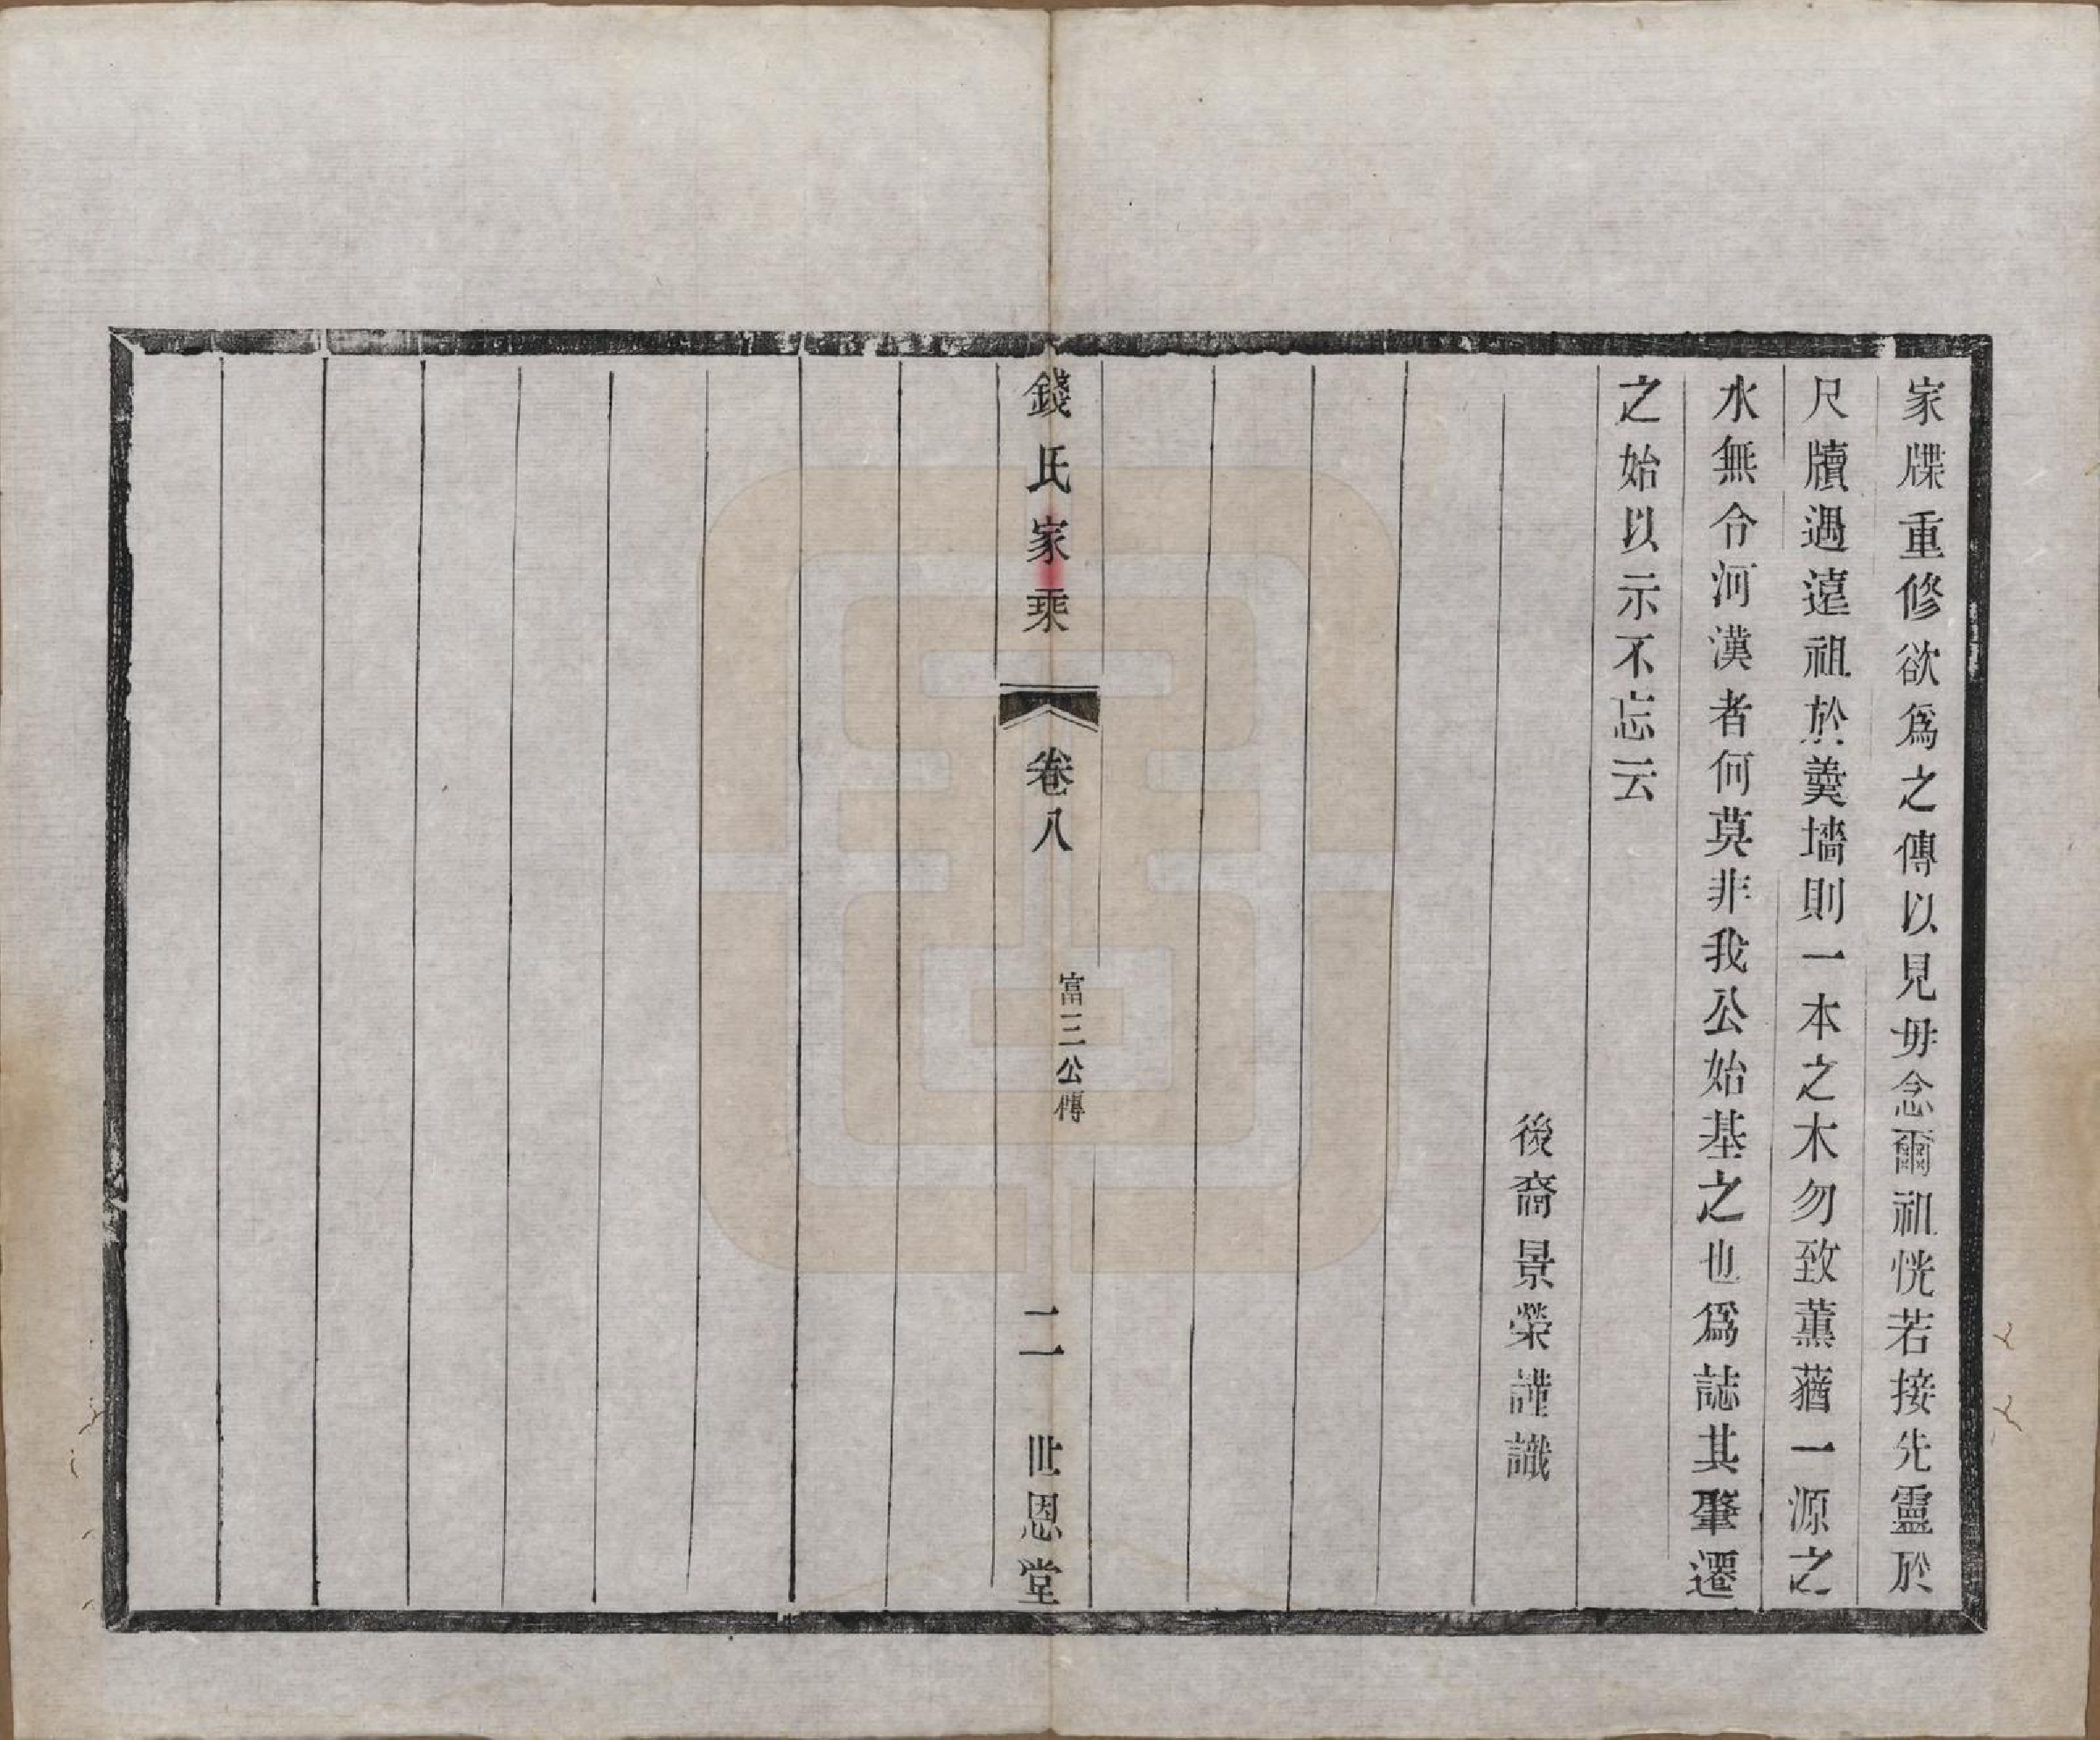 家牒重修欲爲之傳以見毋念爾祖恍若接先靈於
尺牘遇遠祖於羹墻則一本之木勿致薰蕕一源之
水無令河漢者何莫非我公始基之也爲誌其肇遷
之始以示不忘云
後裔景榮謹識
錢氏家乘
卷八
富三公傳
二
世恩堂